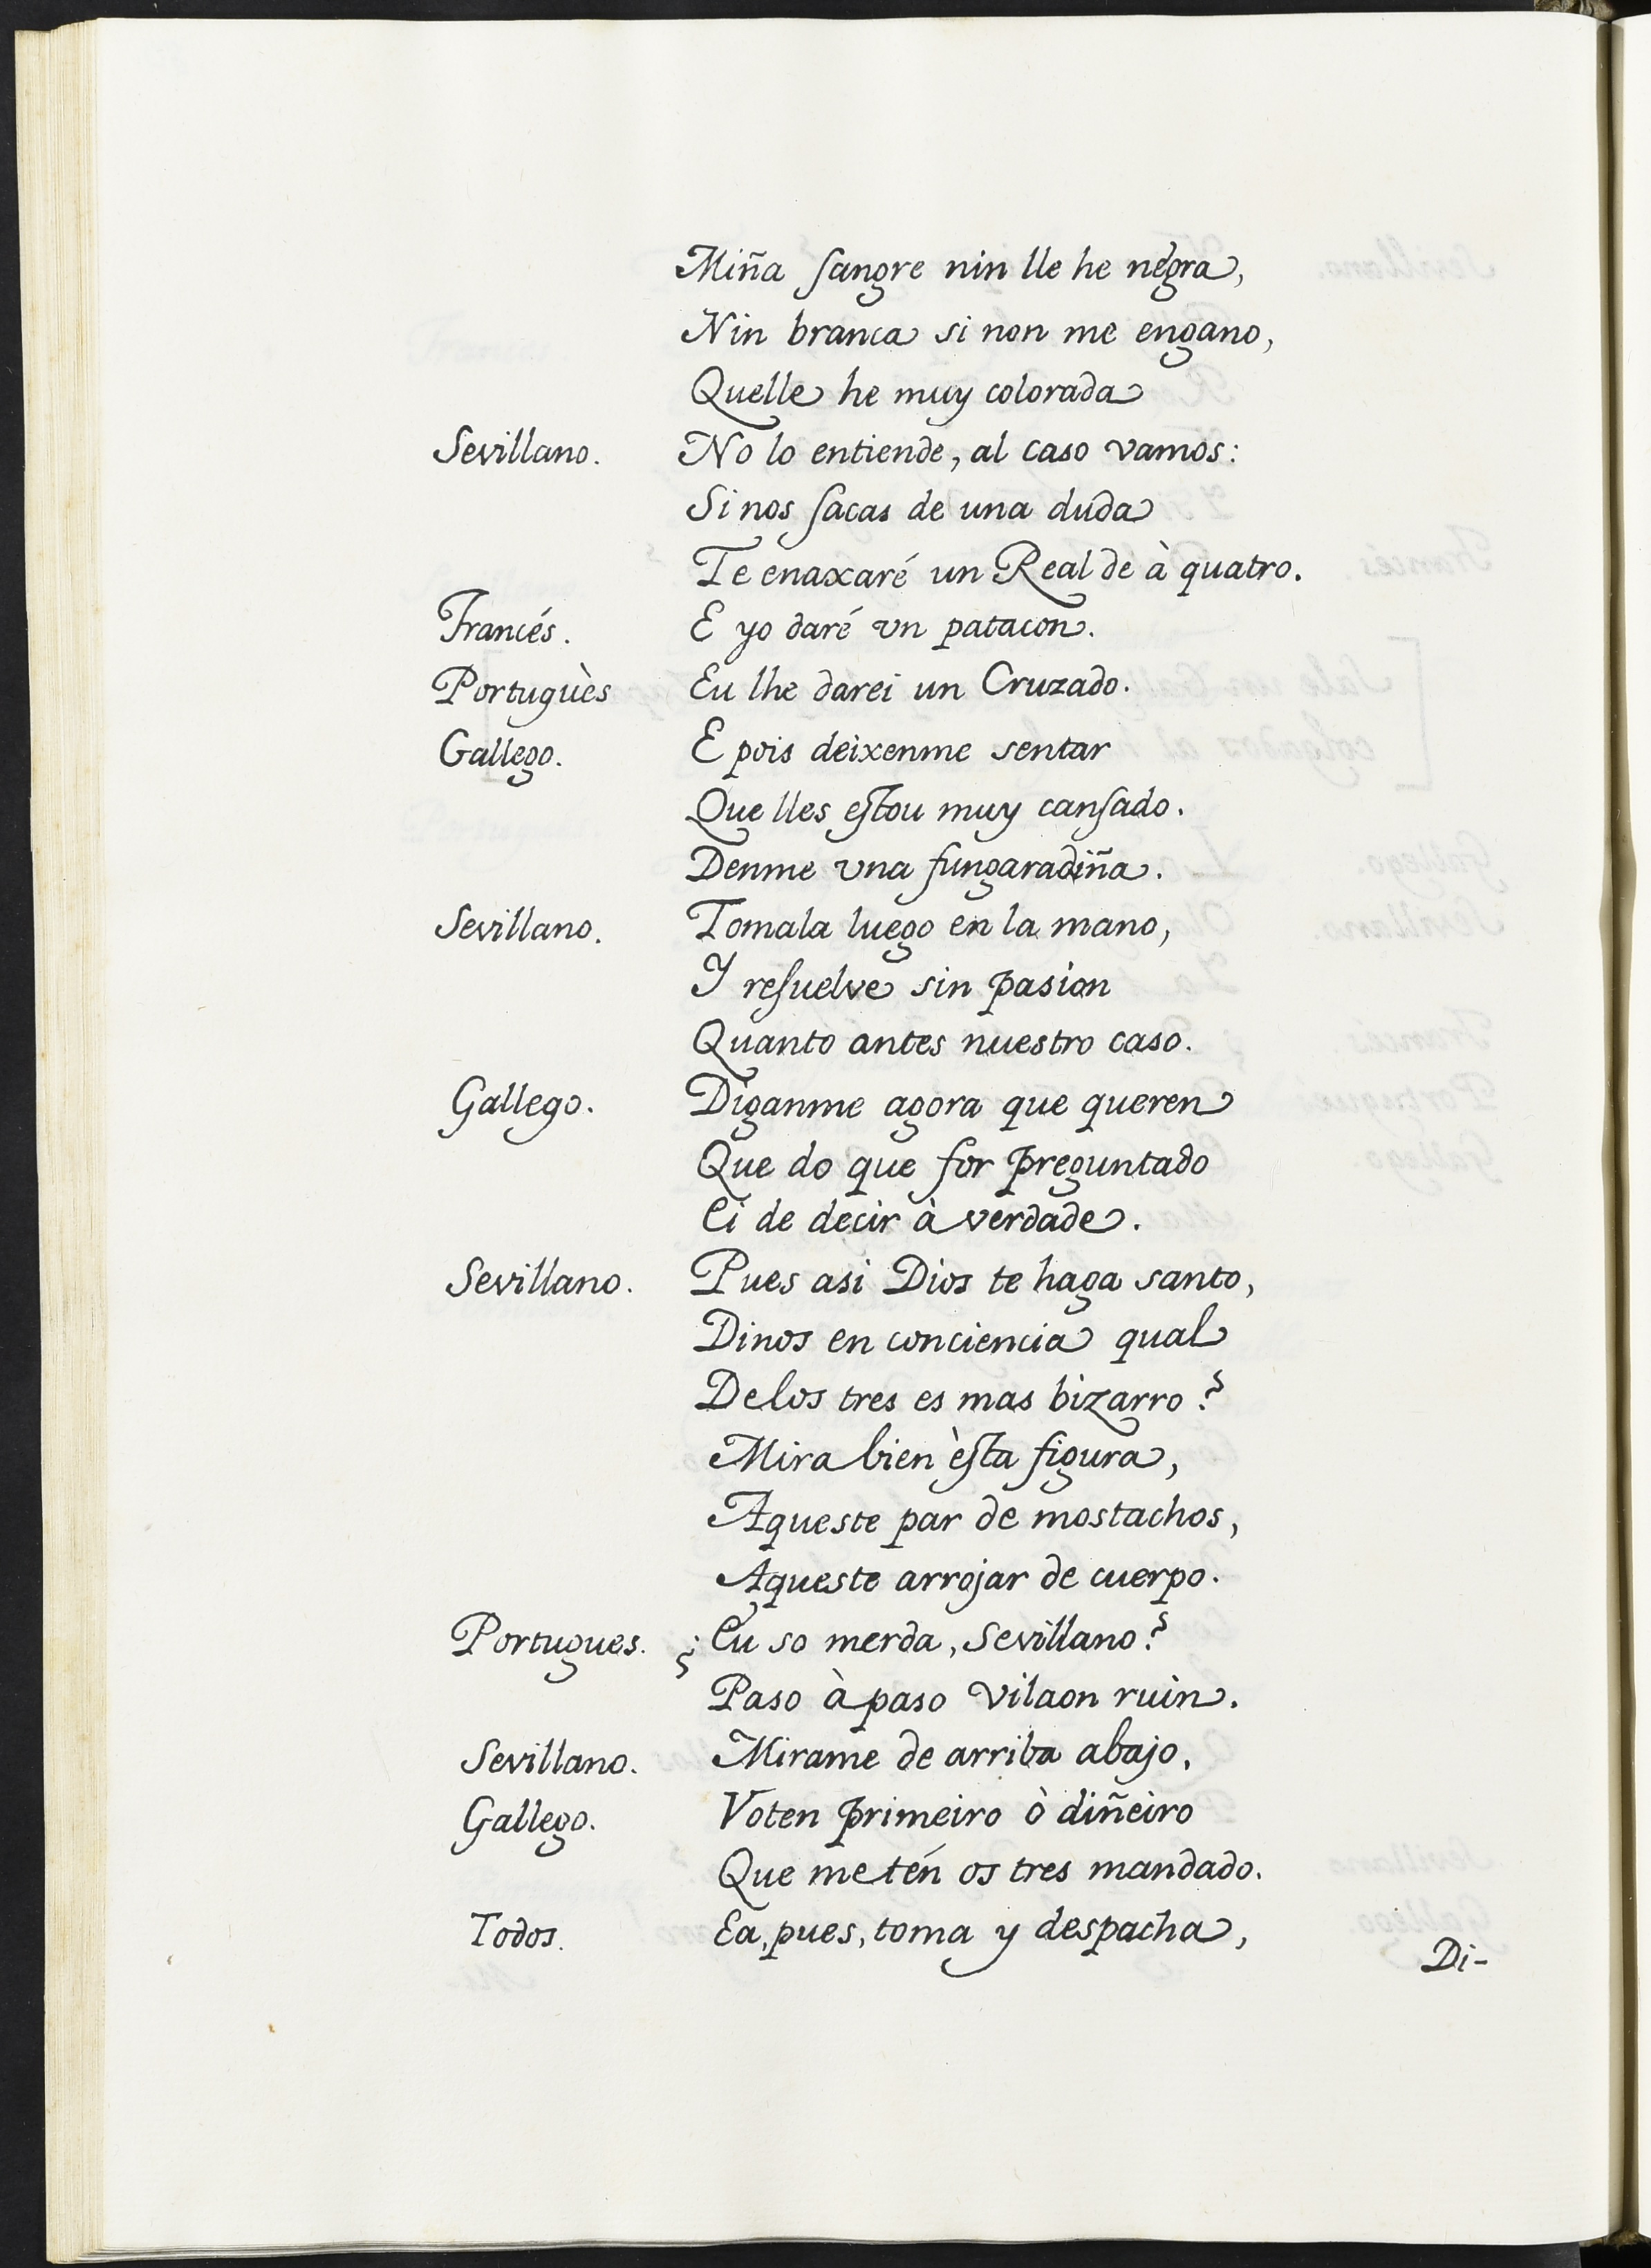 Miña ſangre nin lle he negra,
Nin branca si non me engano,
Quelle he muy colorada
Sevillano. No lo entiende, al caso vamos:
Si nos ſacas de una duda
Te enaxaré un Real de à quatro.
Francés. E yo daré vn patacon.
Portuguès Eu lhe darei un Cruzado.
Gallego. E pois deixenme sentar
Que lles eſtou muy canſado.
Denme vna fungaradiña.
Sevillano. Tomala luego en la mano,
Y reſuelve sin pasion
Quanto antes nuestro caso.
Gallego. Diganme agora que queren
Que do que for preguntado
Ei de decir à verdade.
Sevillano. Pues asi Dios te haga santo,
Dinos en conciencia qual
De los tres es mas bizarro?
Mira bien èſta figura,
Aqueste par de mostachos,
Aqueste arrojar de cuerpo.
Portugues. ¿Eu so merda, Sevillano?
Paso à paso vilaon ruin.
Sevillano. Mirame de arriba abajo.
Gallego. Voten primeiro ò diñeiro
Que me tén os tres mandado.
Todos. Ea, pues, toma y despacha,
Di-